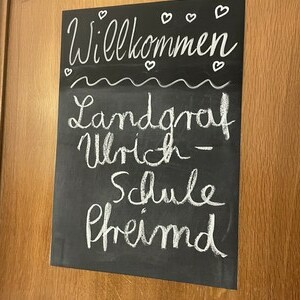 Willkommen
Landgraf
Ulrich-
Schule
Pfreimd